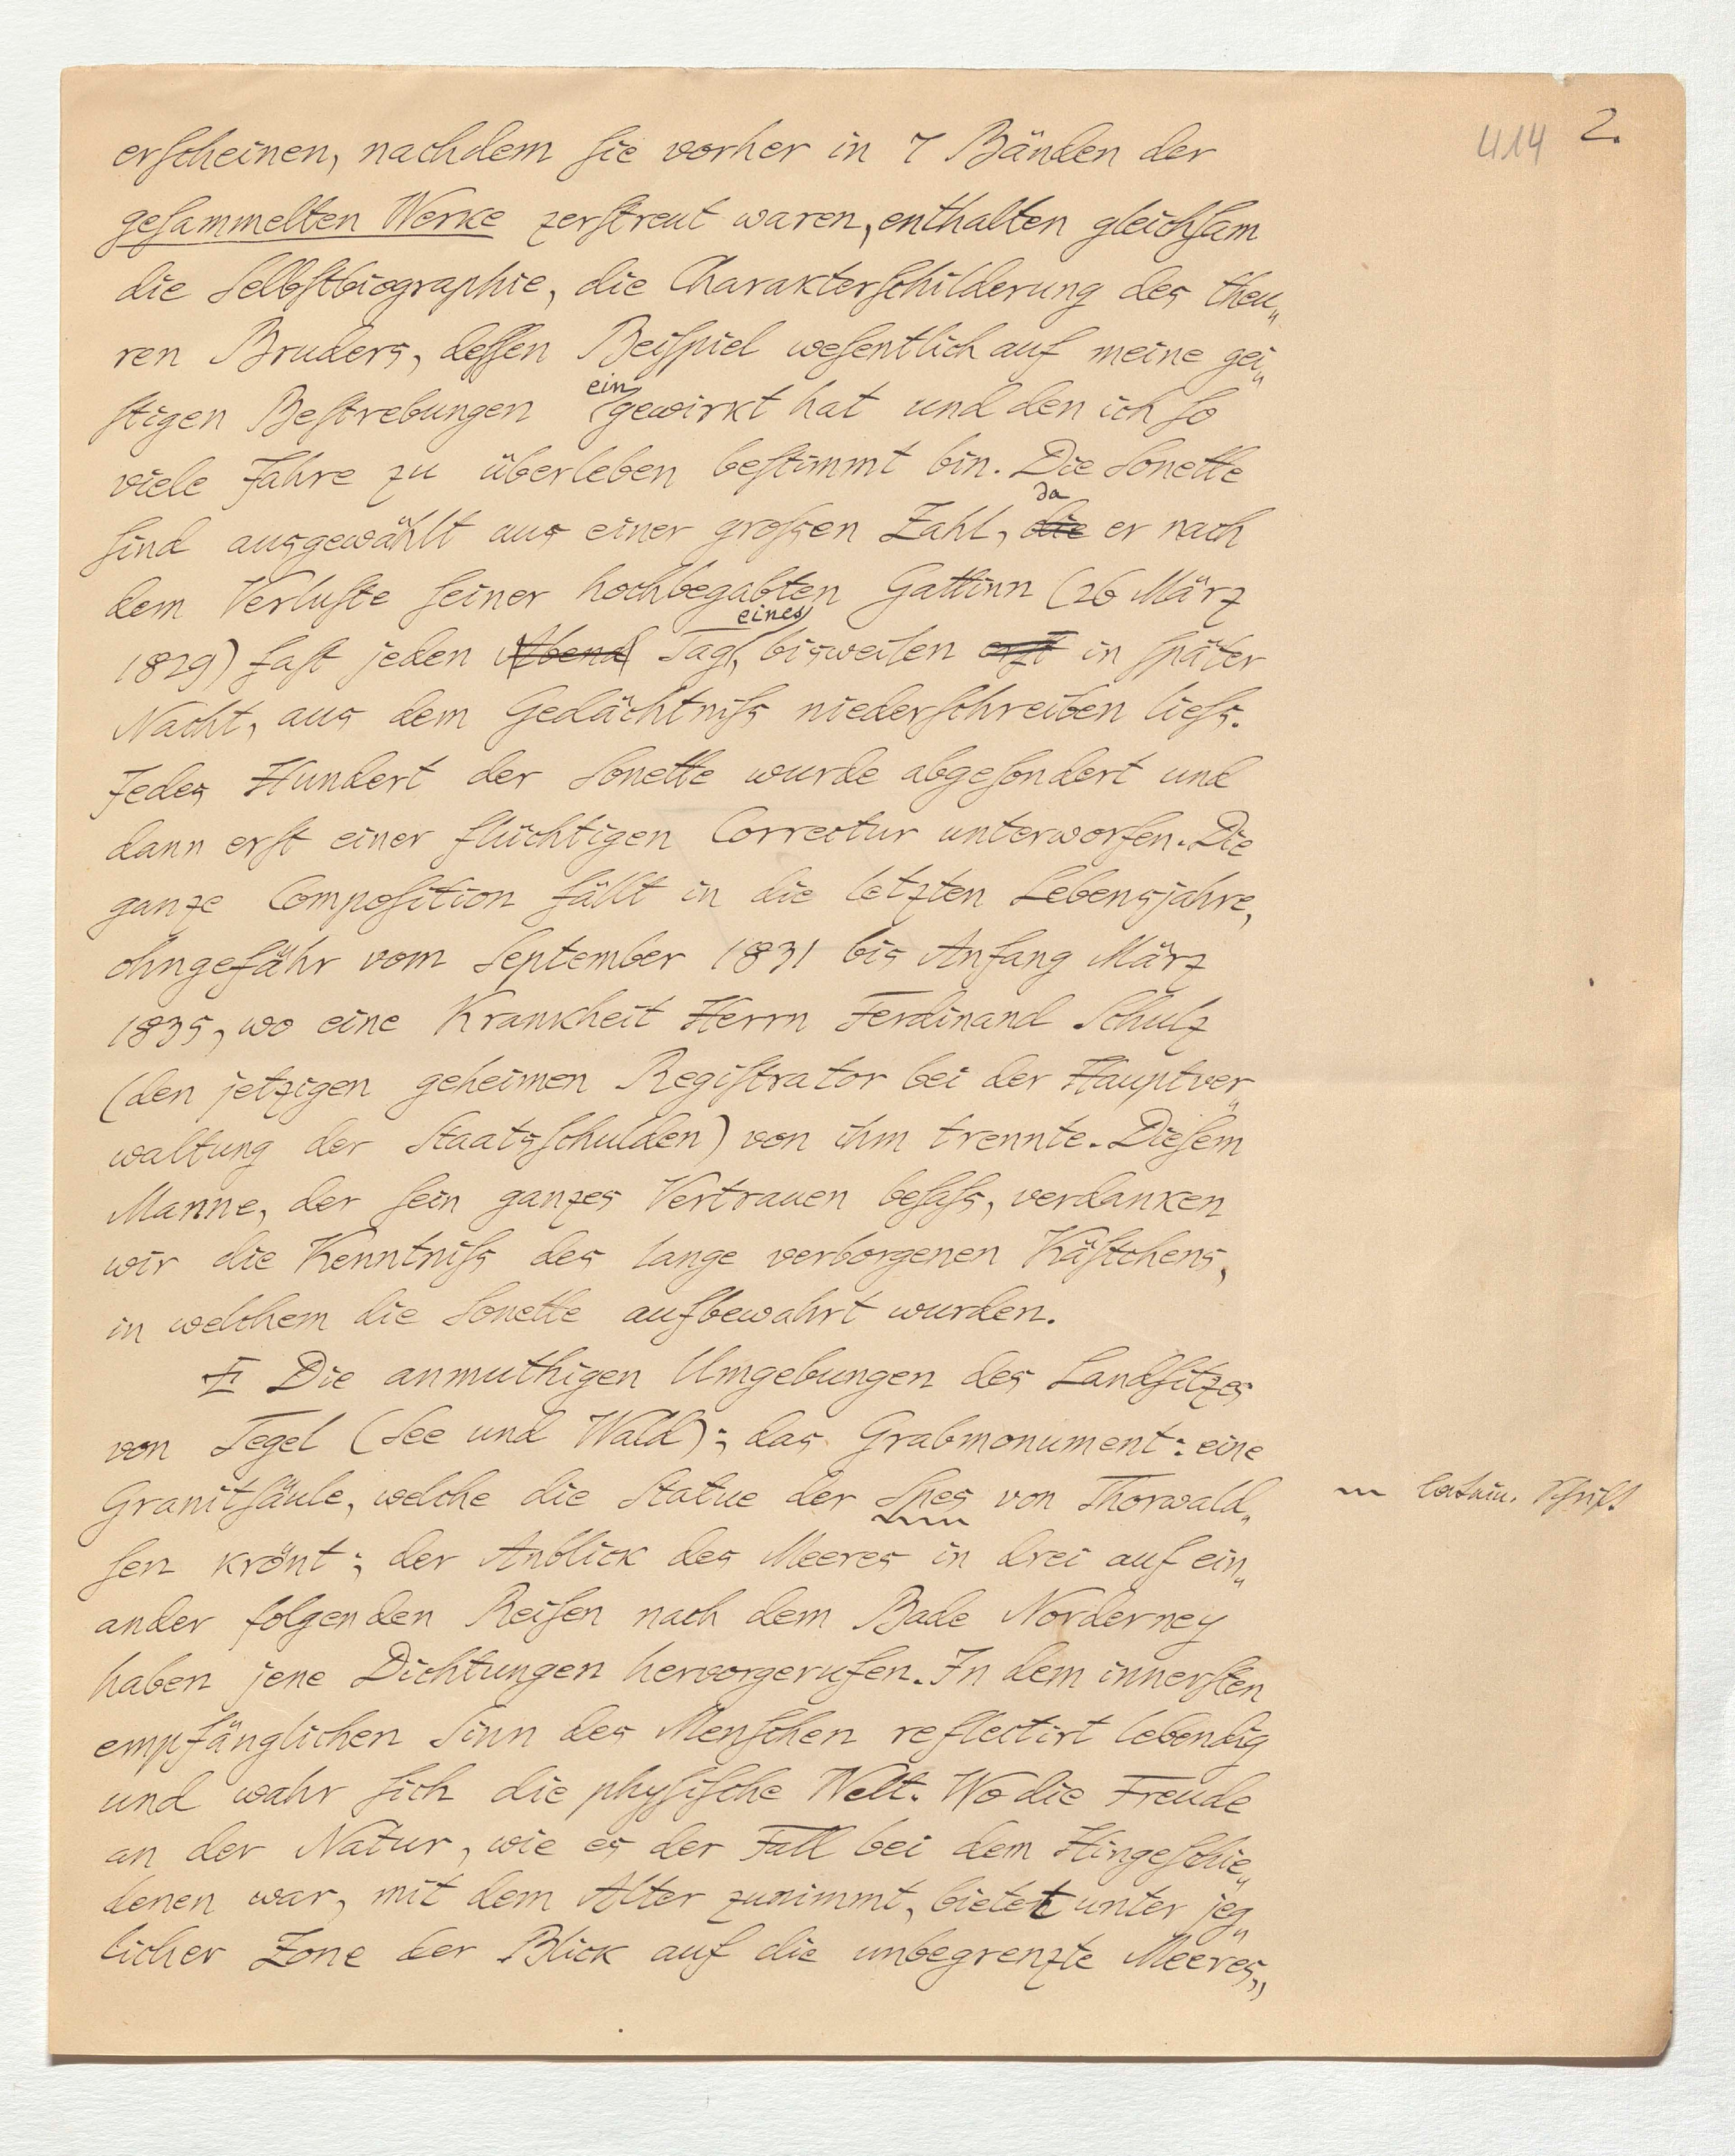 414 2.
erscheinen, nachdem sie vorher in 7 Bänden der
gesammelten Werke zerstreut waren, enthalten gleichsam
die Selbstbiographie, die Charakterschilderung des theu„
ren Bruders, dessen Beispiel wesentlich auf meine gei„
ein
stigen Bestrebungen gewirkt hat und den ich so
viele Jahre zu überleben bestimmt bin. Die Sonette
da
sind ausgewählt aus einer grossen Zahl, die er nach
dem Verluste seiner hochbegabten Gattinn (26 März
eines
1829) fast jeden Abend Tag, bisweilen erst in später
Nacht, aus dem Gedächtniss niederschreiben liess.
Jedes Hundert der Sonette wurde abgesondert und
dann erst einer flüchtigen Correctur unterworfen. Die
ganze Composition fällt in die letzten Lebensjahre,
ohngefähr vom September 1831 bis Anfang März
1835, wo eine Krankheit Herrn Ferdinand Schulz
(den jetzigen geheimen Registrator bei der Hauptver„
waltung der Staatsschulden) von ihm trennte. Diesem
Manne, der sein ganzes Vertrauen besass, verdanken
wir die Kenntniss des lange verborgenen Kästchens,
in welchem die Sonette aufbewahrt wurden.
Die anmuthigen Umgebungen des Landsitzes
von Tegel (See und Wald); das Grabmonument: eine
Granitsäule, welche die Statue der Spes von Thorwald„ latein. Schrift
sen krönt; der Anblick des Meeres in drei auf ein„
ander folgenden Reisen nach dem Bade Norderney
haben jene Dichtungen hervorgerufen. In dem innersten
empfänglichen Sinn des Menschen reflectirt lebendig
und wahr sich die physische Welt. Wo die Freude
an der Natur, wie es der Fall bei dem Hingeschie„
denen war, mit dem Alter zunimmt, bietet unter jeg„
licher Zone der Blick auf die unbegrenzte Meeres„